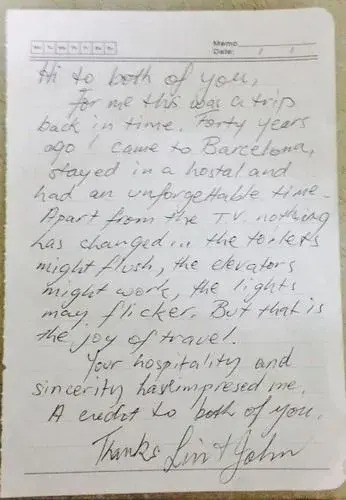 Mo Tu We Th Fr Sa Su
Memo
Date: / /
Hi to both of you,
For me this was a trip
back in time. Forty years
ago I came to Barcelona,
stayed in a hostal and
had an unforgettable time.
Apart from the T.V. nothing
has changed in the toilets
might flush, the elevators
might work, the lights
may flicker. But that is
the joy of travel.
Your hospitality and
sincerity have impresed me.
A credit to both of you.
Thanks Lin + John